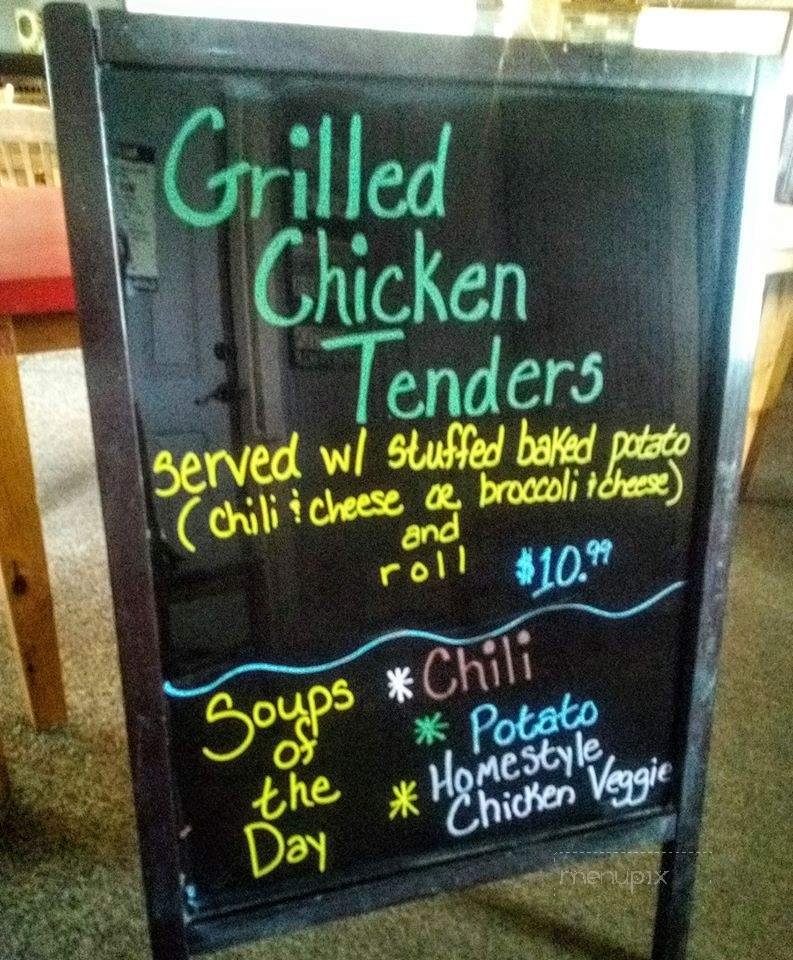 Grilled
Chicken
Tenders
served w/ stuffed baked potato
(chili & cheese or broccoli & cheese)
and
roll $10.99
Soups
of
the
Day
* Chili
* Potato
* Homestyle
Chicken Veggie
menupix